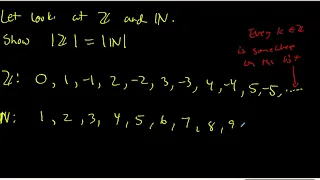 Let look at ℤ and ℕ.
Show |ℤ| = |ℕ|
Every k ∈ ℤ
is somewhere
on the list
ℤ: 0, 1, -1, 2, -2, 3, -3, 4, -4, 5, -5, .....
ℕ: 1, 2, 3, 4, 5, 6, 7, 8, 9